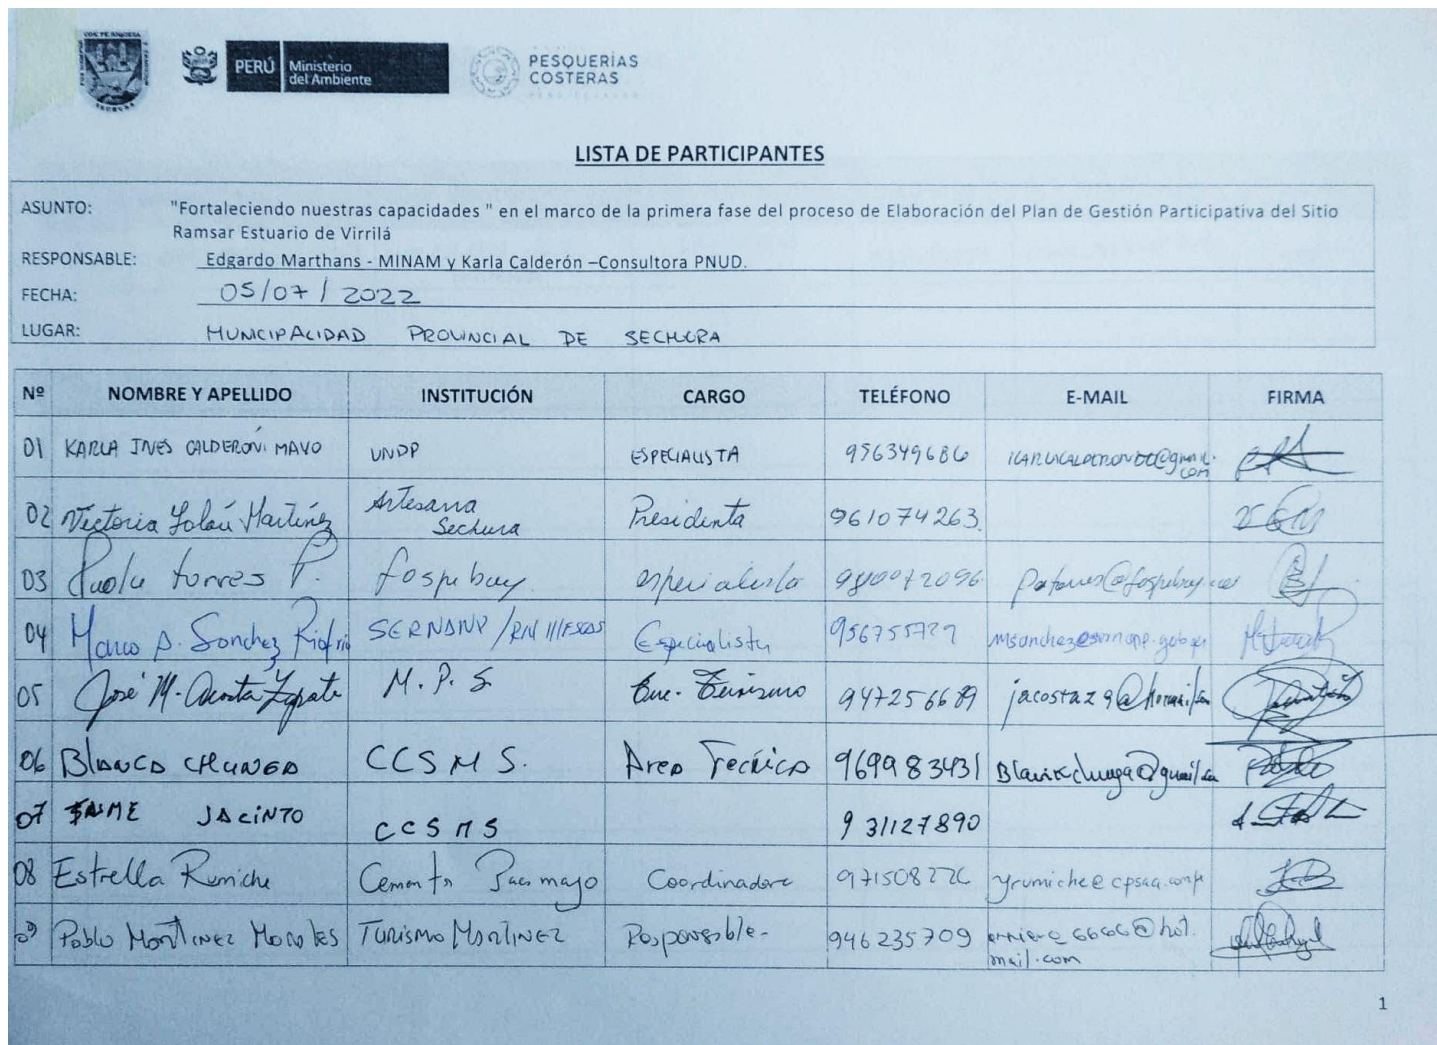 PERÚ Ministerio del Ambiente
PESQUERÍAS COSTERAS
LISTA DE PARTICIPANTES
ASUNTO: "Fortaleciendo nuestras capacidades " en el marco de la primera fase del proceso de Elaboración del Plan de Gestión Participativa del Sitio
Ramsar Estuario de Virrilá
RESPONSABLE: Edgardo Marthans - MINAM y Karla Calderón –Consultora PNUD.
FECHA: 05/07/2022
LUGAR: MUNICIPALIDAD PROVINCIAL DE SECHURA
Nº NOMBRE Y APELLIDO INSTITUCIÓN CARGO TELÉFONO E-MAIL FIRMA
01 KARLA INES CALDERÓN MAVO UNDP ESPECIALISTA 956349686
02 Victoria Martinez Artesana Sechura Presidenta 961074263.
03 Paola torres P. fospibay especialista 980072096
04 Marco A. Sanchez SERNANP Especialista 956755729
05 José M. Acosta Zapata M.P.S. Turismo jacostaz9@
06 Blanca CHUNGA CCSMS. Area Tecnica 969983431
07 JAIME JACINTO CCSMS 931127890
08 Estrella Rumiche Cementos Pacasmayo Coordinadora yrumiche@cpsaa.com.pe
09 Pablo MARTINEZ Morales TURISMO MARTINEZ Responsable- 946235709
1